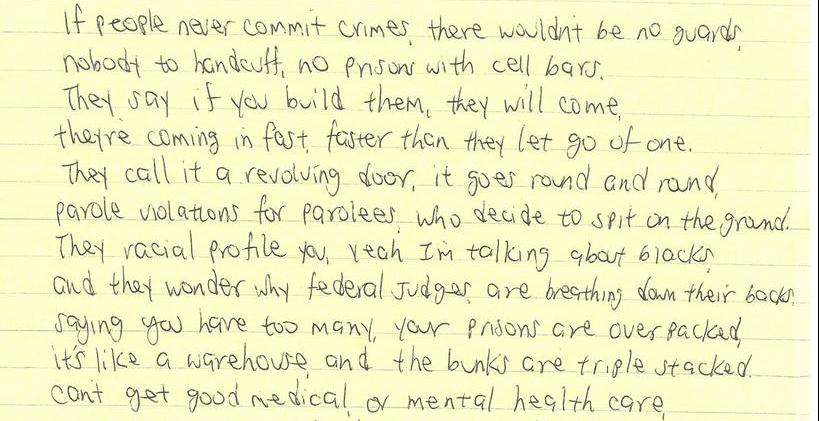 If people never commit crimes, there wouldn't be no guards,
nobody to handcuff, no prisons with cell bars.
They say if you build them, they will come,
they're coming in fast, faster than they let go of one.
They call it a revolving door, it goes round and round,
parole violations for parolees, who decide to spit on the ground.
They racial profile you, yeah I'm talking about blacks,
and they wonder why federal Judges, are breathing down their backs,
saying you have too many, your prisons are over packed,
it's like a warehouse, and the bunks are triple stacked.
can't get good medical, or mental health care,